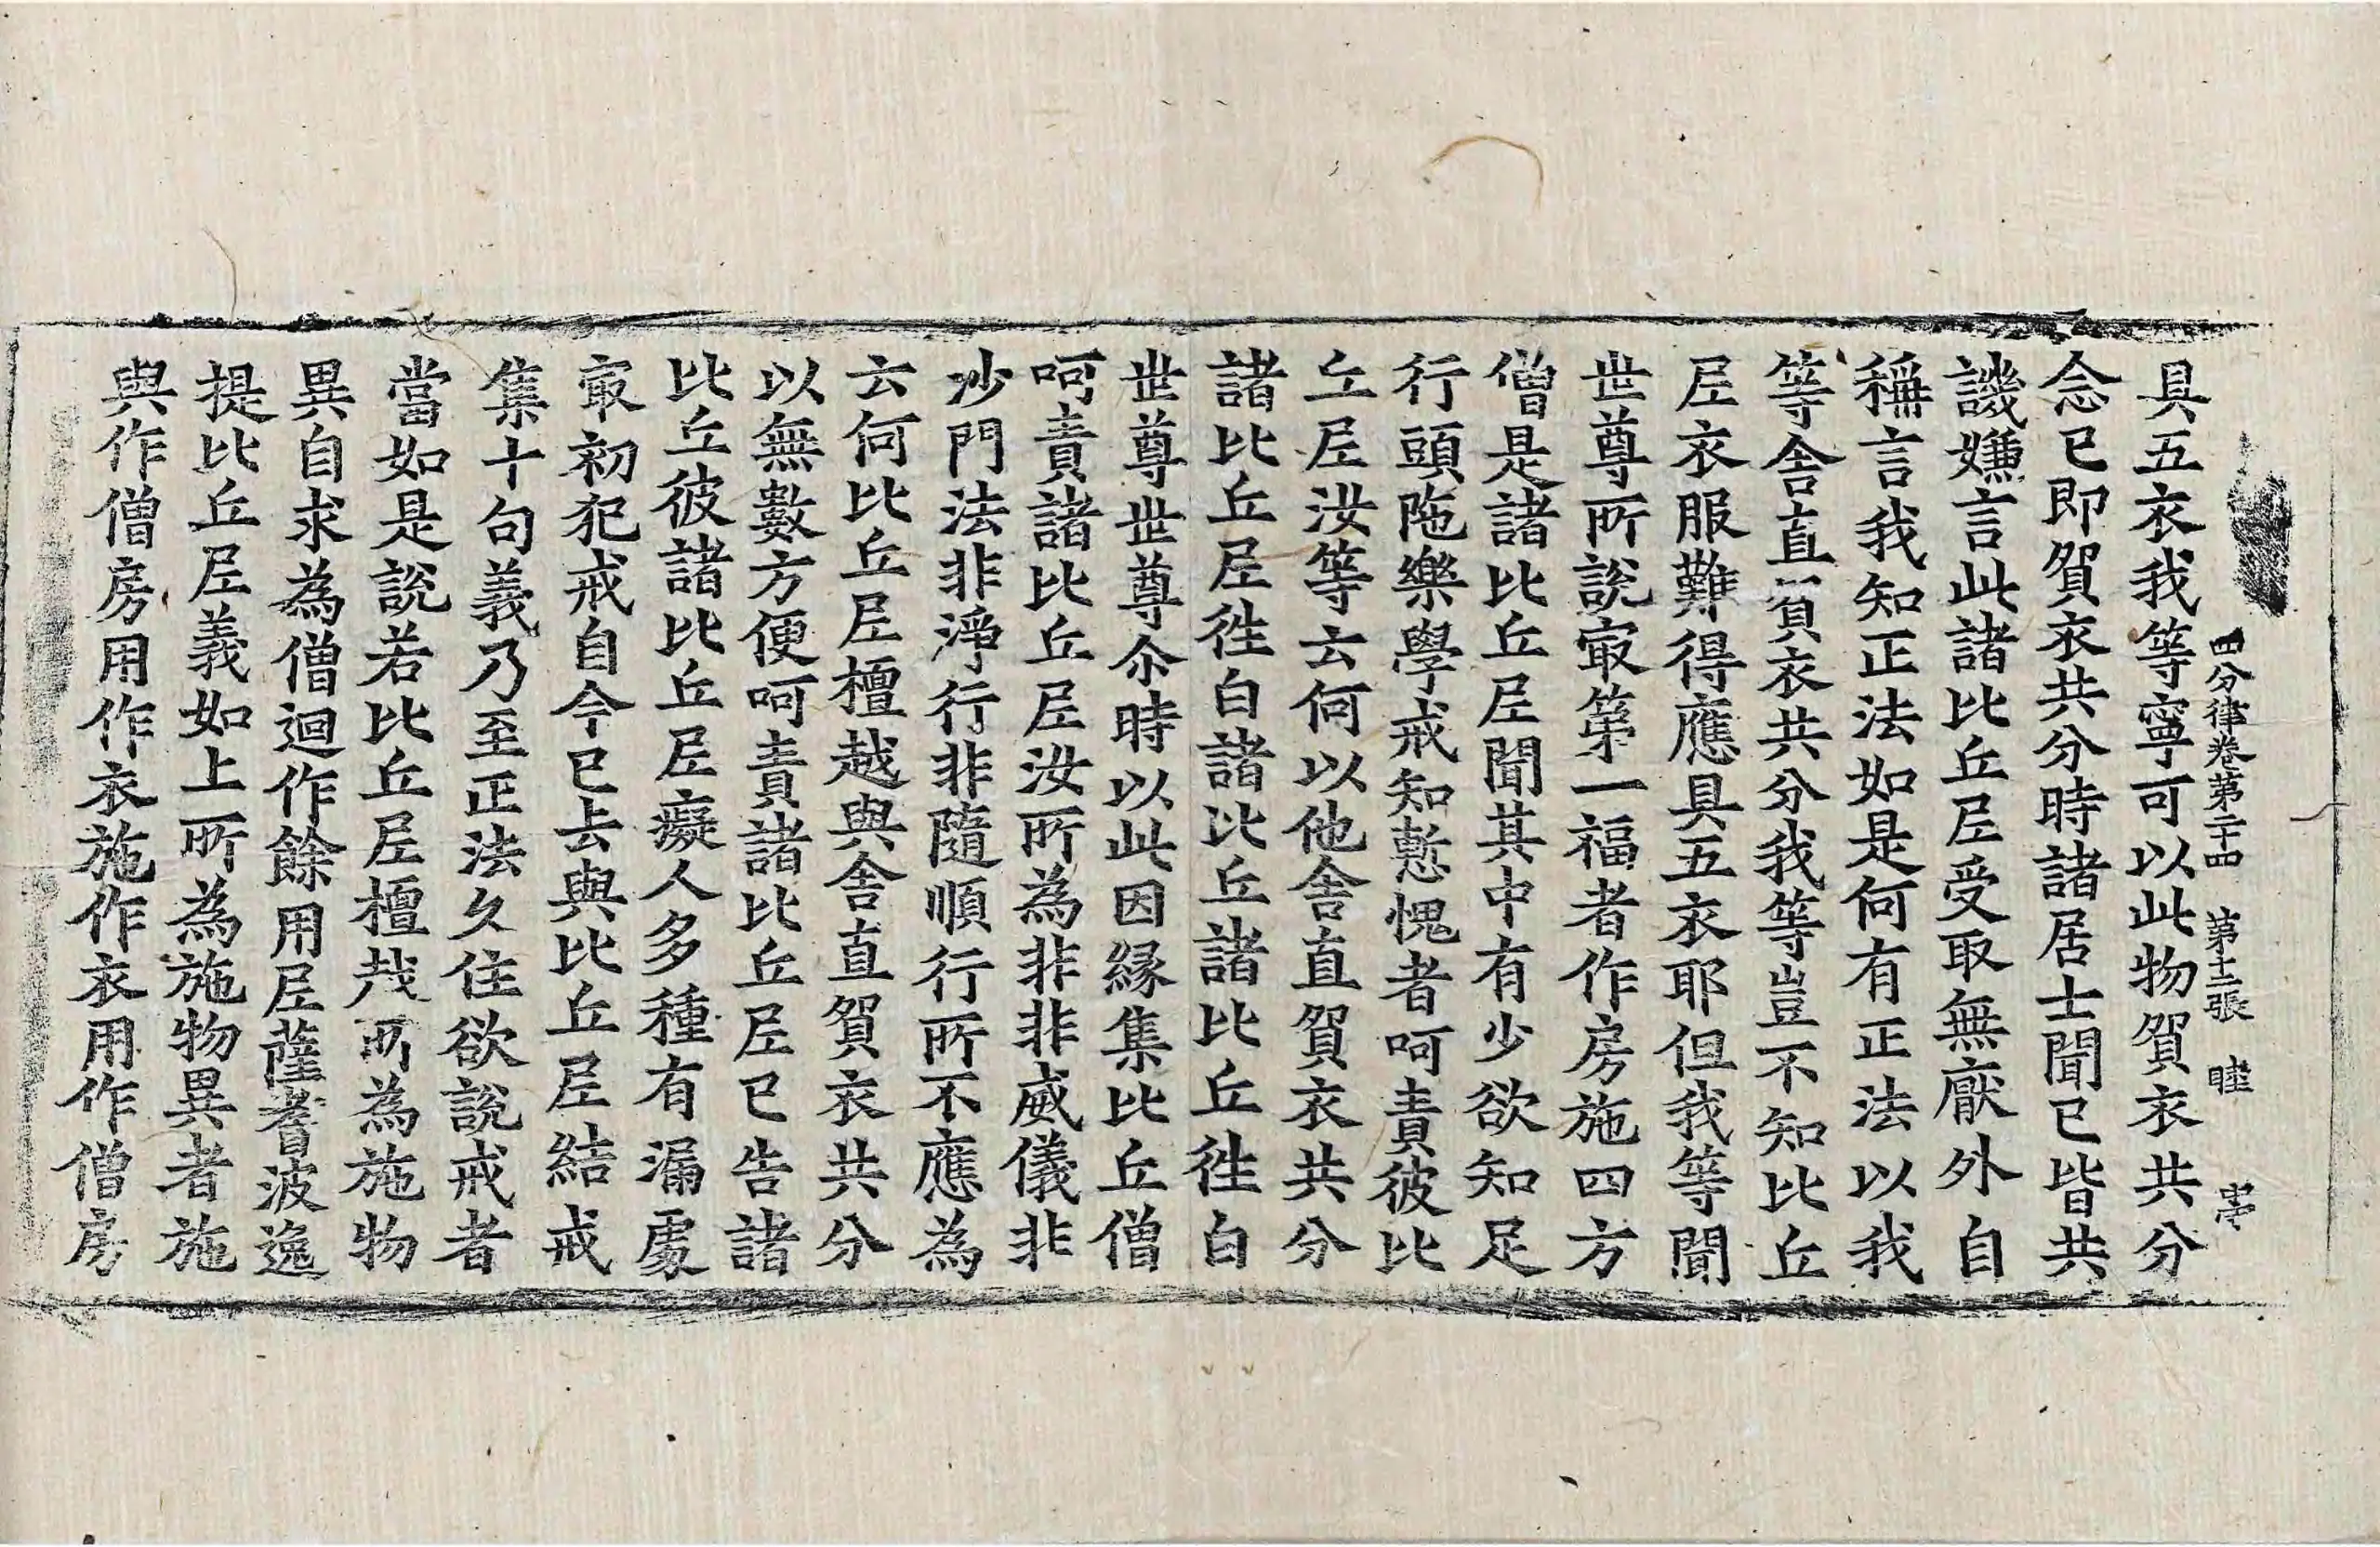 四分律卷第二十四　第十二張　睦
具五衣我等寧可以此物貿衣共分
念已即貿衣共分時諸居士聞已皆共
譏嫌言此諸比丘尼受取無厭外自
稱言我知正法如是何有正法以我
等舍直貿衣共分我等豈不知比丘
尼衣服難得應具五衣耶但我等聞
世尊所說㝡第一福者作房施四方
僧是諸比丘尼聞其中有少欲知足
行頭陁樂學戒知慙愧者呵責彼比
丘尼汝等云何以他舍直貿衣共分
諸比丘尼徃白諸比丘諸比丘徃白
世尊世尊尒時以此因緣集比丘僧
呵責諸比丘尼汝所為非非威儀非
沙門法非淨行非隨順行所不應為
云何比丘尼檀越與舍直貿衣共分
以無數方便呵責諸比丘尼已告諸
比丘彼諸比丘尼癡人多種有漏處
㝡初犯戒自今已去與比丘尼結戒
集十句義乃至正法久住欲說戒者
當如是說若比丘尼檀越所為施物
異自求為僧迴作餘用尼薩耆波逸
提比丘尼義如上所為施物異者施
與作僧房用作衣施作衣用作僧房